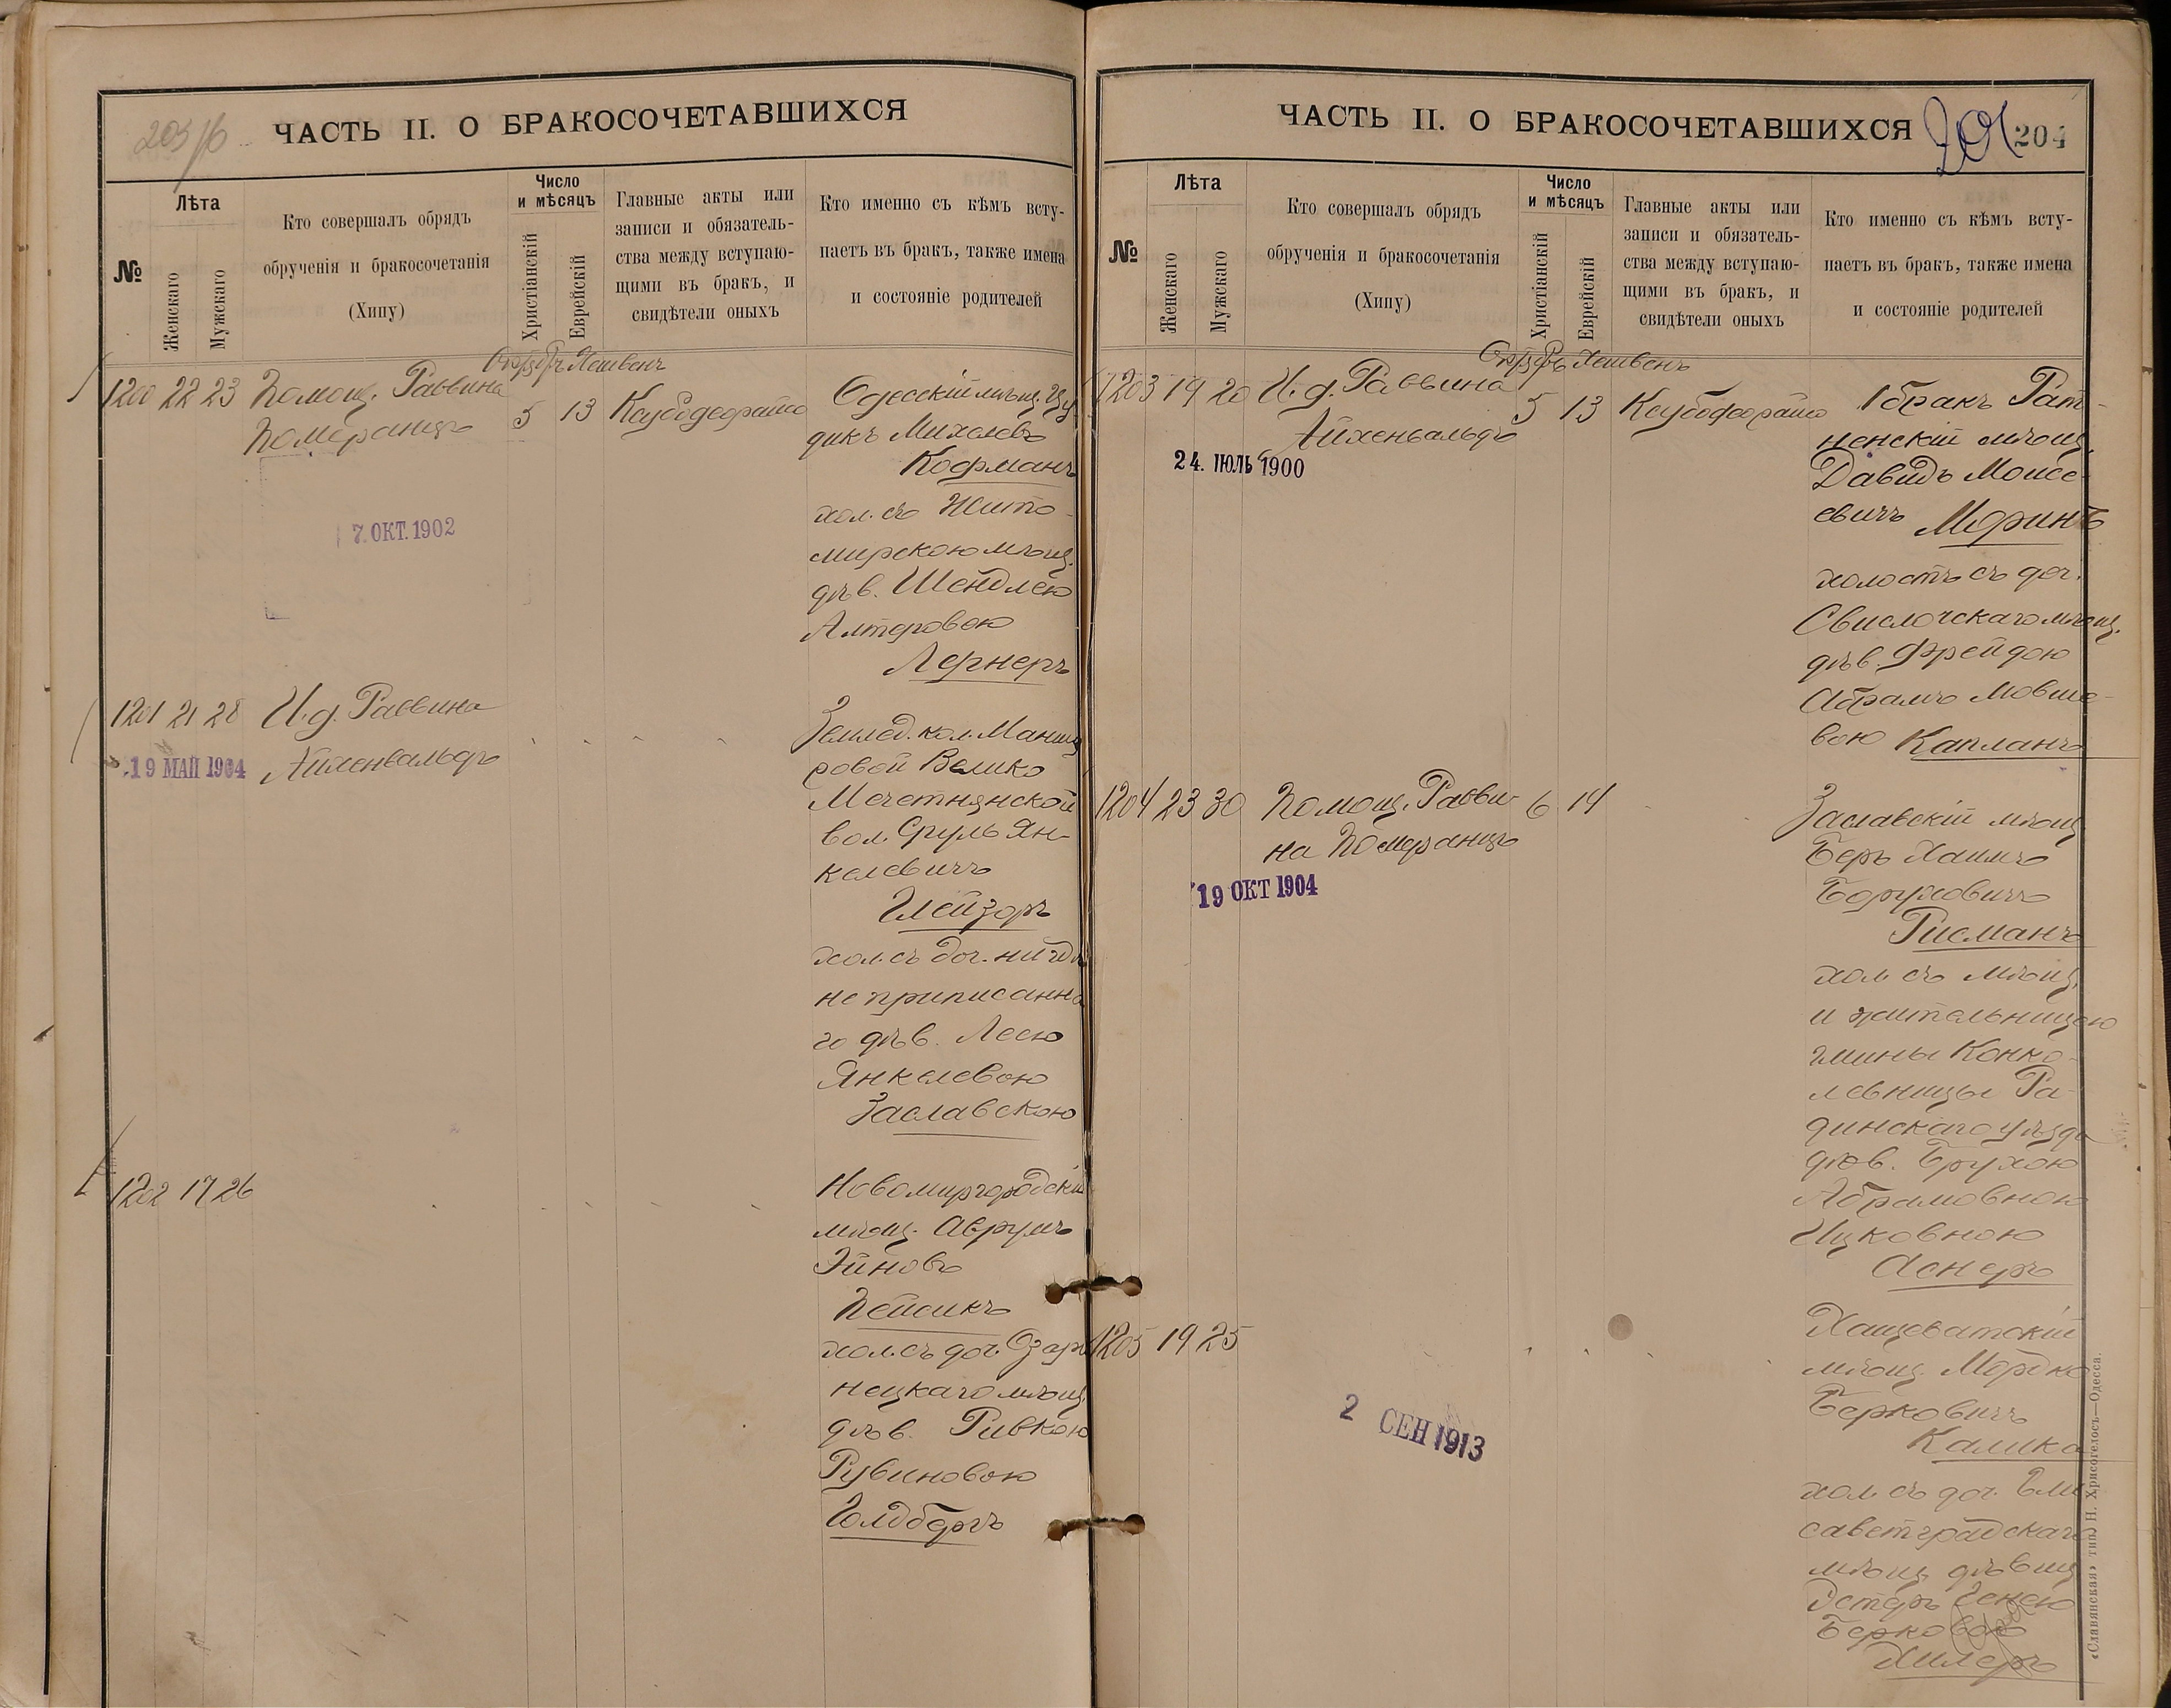 203/б
ЧАСТЬ II. О БРАКОСОЧЕТАВШИХСЯ
№
Лѣта
Женскаго
Мужскаго
Кто совершалъ обрядъ
обрученія и бракосочетанія
(Хипу)
Число
и мѣсяцъ
Христіанскій
Еврейскій
Главные акты или
записи и обязатель-
ства между вступаю-
щими въ бракъ, и
свидѣтели оныхъ
Кто именно съ кѣмъ всту-
паетъ въ бракъ, также имена
и состояніе родителей
Хешвенъ
1200 22 23 Помощ. Раввина
Померанцъ
5 13
Одесскій мѣщ. Цу
дикъ Михелевъ
Кофманъ
хол. съ Жито-
мирскою мѣщ.
дѣв. Шейндлею
Алтеровою
Лернеръ
7. ОКТ. 1902
1201 21 28 И. д. Раввина
Айхенвальдъ
19 МАЙ 1904
Землед. кол. Манищ
ровой Велико
Мечетнянской
вол. Сруль Ян-
келевичъ
Глейзеръ
хол. съ доч. нигдѣ
не приписанна
го дѣв. Леею
Янкелевою
Заславскою
1202 17 26
Новомиргородскій
мѣщ. Аврумъ
Эйновъ
Пейсикъ
хол. съ доч. Озари
нецкаго мѣщ.
дѣв. Ривкою
Рувиновою
Голдбергъ
ЧАСТЬ II. О БРАКОСОЧЕТАВШИХСЯ
204
№
Лѣта
Женскаго
Мужскаго
Кто совершалъ обрядъ
обрученія и бракосочетанія
(Хипу)
Число
и мѣсяцъ
Христіанскій
Еврейскій
Главные акты или
записи и обязатель-
ства между вступаю-
щими въ бракъ, и
свидѣтели оныхъ
Кто именно съ кѣмъ всту-
паетъ въ бракъ, также имена
и состояніе родителей
Хешвенъ
1203 19 20 И. д. Раввина
Айхенвальдъ
5 13
24. ІЮЛЬ 1900
1 бракъ Рат-
ненскій мѣщ.
Давидъ Моисе-
евичъ Моринъ
холостъ съ доч.
Свислочскаго мѣщ.
дѣв. Фрейдою
Абрамъ Мовше-
вою Капланъ
1204 23 30 Помощ. Равви-
на Померанцъ
6 14
19 ОКТ 1904
Заславскій мѣщ.
Беръ Хаимъ
Боруховичъ
Рисманъ
хол. съ мѣщ.
и жительницею
гмины Конко-
левницы Ра-
динскаго уѣзда
дѣв. Брухою
Абрамовною
Ицковною
Аснеръ
1205 19 25
2 СЕН 1913
Хащеватскій
мѣщ. Мордко
Берковичъ
Калика
хол. съ доч. Ели
саветградскаго
мѣщ. дѣвиц.
Эстеръ Генею
Берковою
Хилеръ
«Славянская» тип. Н. Хрисогелосъ—Одесса.